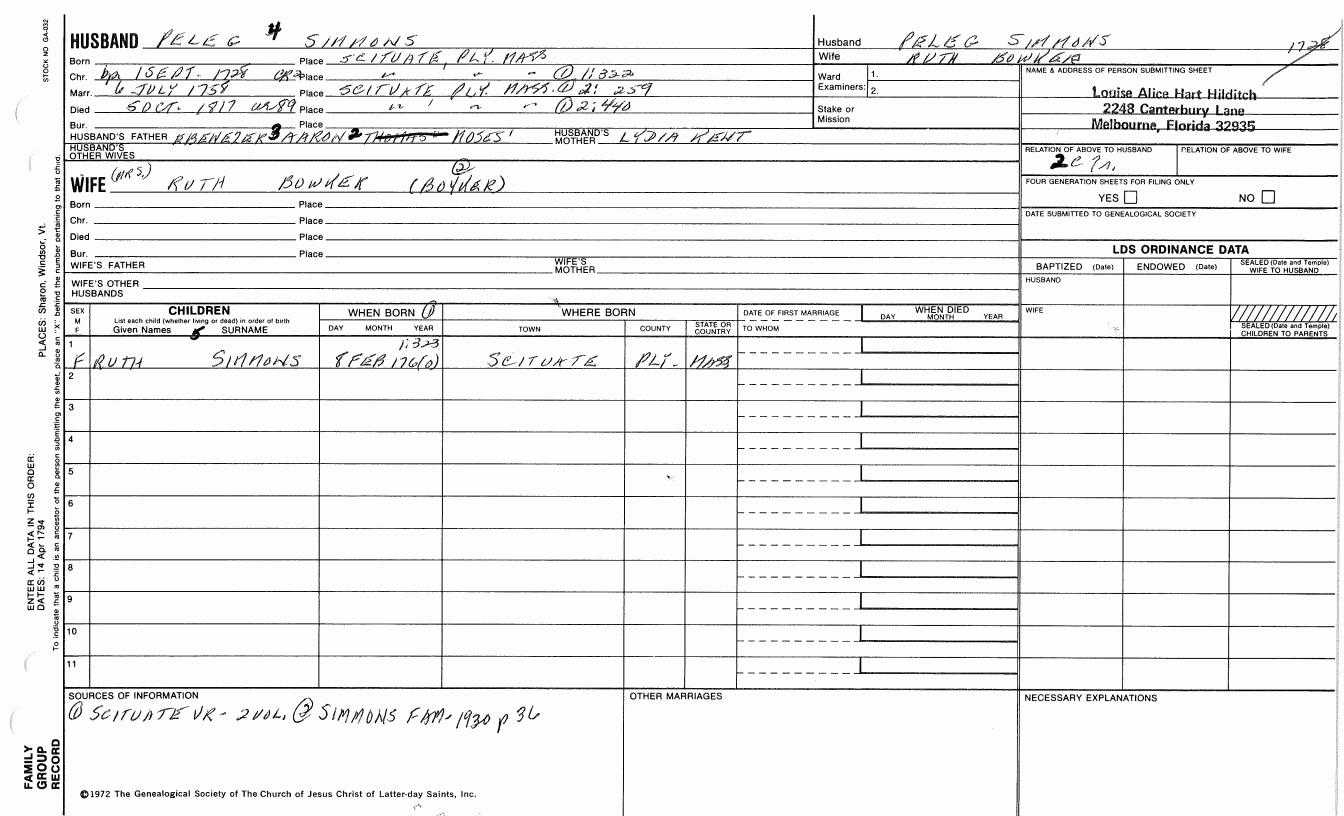 STOCK NO GA-032
HUSBAND PELEG 4 SIMMONS
Born Place SCITUATE, PLY. MASS
Chr. bp 1 SEPT. 1728 CR2 Place " " " ① 1:322
Marr. 6 JULY 1758 Place SCITUATE PLY. MASS. ① 2: 259
Died 5 OCT. 1817 ae 89 Place " " " ① 2:440
Bur. Place
HUSBAND'S FATHER EBENEZER 3 AARON 2 THOMAS MOSES 1 HUSBAND'S MOTHER LYDIA KENT
HUSBAND'S OTHER WIVES
WIFE (MRS.) RUTH BOWKER (BOYKER) ②
Born Place
Chr. Place
Died Place
Bur. Place
WIFE'S FATHER WIFE'S MOTHER
WIFE'S OTHER HUSBANDS
Husband PELEG SIMMONS 1728
Wife RUTH BOWKER
Ward Examiners: 1. 2.
Stake or Mission
NAME & ADDRESS OF PERSON SUBMITTING SHEET
Louise Alice Hart Hilditch
2248 Canterbury Lane
Melbourne, Florida 32935
RELATION OF ABOVE TO HUSBAND RELATION OF ABOVE TO WIFE
2C
FOUR GENERATION SHEETS FOR FILING ONLY
YES NO
DATE SUBMITTED TO GENEALOGICAL SOCIETY
LDS ORDINANCE DATA
BAPTIZED (Date) ENDOWED (Date) SEALED (Date and Temple) WIFE TO HUSBAND
HUSBAND
WIFE
SEALED (Date and Temple) CHILDREN TO PARENTS
SEX M F
CHILDREN
List each child (whether living or dead) in order of birth
Given Names 5 SURNAME
WHEN BORN ①
DAY MONTH YEAR
WHERE BORN
TOWN COUNTY STATE OR COUNTRY
DATE OF FIRST MARRIAGE
TO WHOM
WHEN DIED
DAY MONTH YEAR
1:323
1 F RUTH SIMMONS 8 FEB 176(0) SCITUATE PLY. MASS
2
3
4
5
6
7
8
9
10
11
SOURCES OF INFORMATION
① SCITUATE VR - 2 VOL. ② SIMMONS FAM - 1930 p 36
OTHER MARRIAGES
NECESSARY EXPLANATIONS
©1972 The Genealogical Society of The Church of Jesus Christ of Latter-day Saints, Inc.
FAMILY GROUP RECORD
ENTER ALL DATA IN THIS ORDER:
DATES: 14 Apr 1794
PLACES: Sharon, Windsor, Vt.
To indicate that a child is an ancestor of the person submitting the sheet, place an "X" behind the number pertaining to that child.